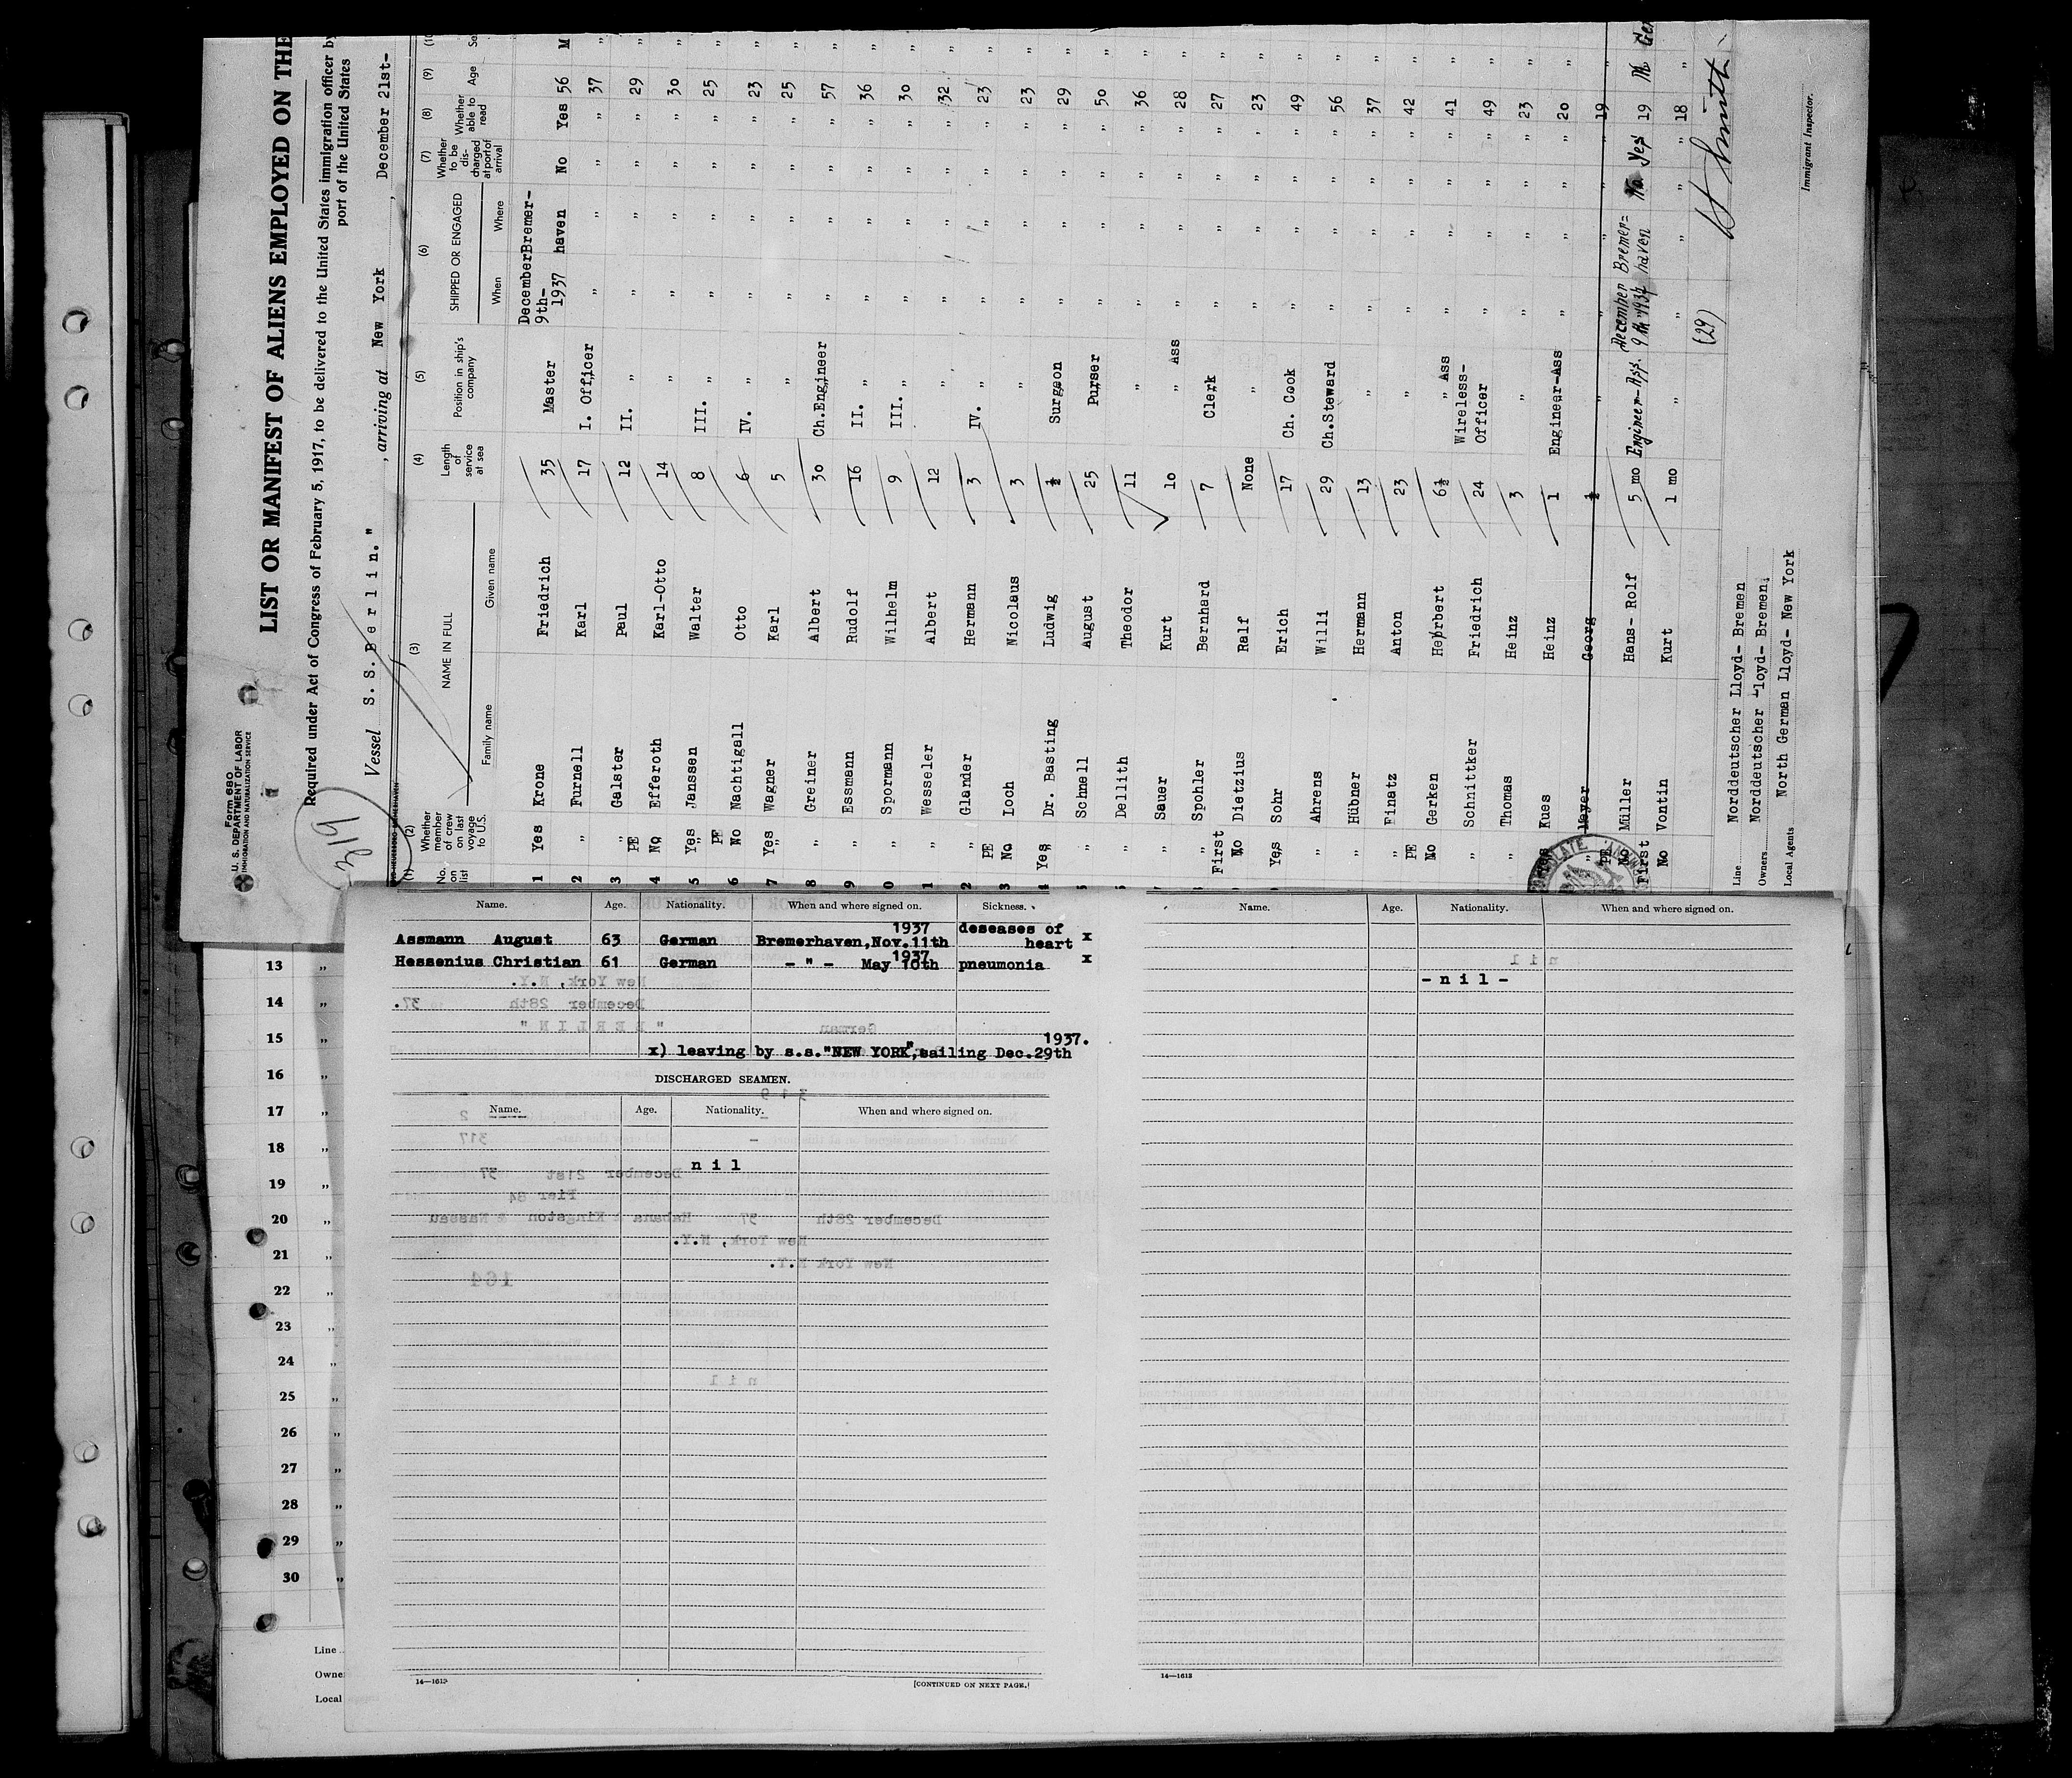 Form 680
U. S. DEPARTMENT OF LABOR
IMMIGRATION AND NATURALIZATION SERVICE
LIST OR MANIFEST OF ALIENS EMPLOYED ON THE
Required under Act of Congress of February 5, 1917, to be delivered to the United States immigration officer by
port of the United States
Vessel S. S. B e r l i n. " , arriving at New York , December 21st-
(1) (2) (3) (4) (5) (6) (7) (8) (9) (10
No. on list
Whether member of crew on last voyage to U.S.
NAME IN FULL
Family name Given name
Length of service at sea
Position in ship's company
SHIPPED OR ENGAGED
When Where
Whether to be dis-charged at port of arrival
Whether able to read
Age
Se
1 Yes Krone Friedrich 35 Master December 9th- 1937 Bremer-haven No Yes 56 M
2 " Furnell Karl 17 I. Officer " " " " 37 "
3 " Galster Paul 12 II. " " " " " 29 "
4 PE No Efferoth Karl-Otto 14 " " " " " 30 "
5 Yes " Janssen Walter 8 III. " " " " " 25 "
6 PE No Nachtigall Otto 6 IV. " " " " " 23 "
7 Yes " Wagner Karl 5 " " " " " 25 "
8 " Greiner Albert 30 Ch.Engineer " " " " 57 "
9 " Essmann Rudolf 16 II. " " " " " 36 "
0 " Spormann Wilhelm 9 III. " " " " " 30 "
1 " Wesseler Albert 12 " " " " " 32 "
2 " Glander Hermann 3 IV. " " " " " 23 "
3 PE No Loch Nicolaus 3 " " " " " 23 "
4 Yes " Dr. Basting Ludwig ½ Surgeon " " " " 29 "
5 " Schnell August 25 Purser " " " " 50 "
" Dellith Theodor 11 " " " " " 36 "
" Sauer Kurt 10 " Ass " " " " 28 "
" Spohler Bernhard 7 Clerk " " " " 27 "
First No Dietzius Ralf None " " " " " 23 "
Yes Sohr Erich 17 Ch. Cook " " " " 49 "
" Ahrens Willi 29 Ch.Steward " " " " 56 "
" Hübner Hermann 13 " " " " " 37 "
" Finatz Anton 23 " " " " " 42 "
PE No Gerken Herbert 6½ " Ass " " " " 41 "
" Schnittker Friedrich 24 Wireless-Officer " " " " 49 "
" Thomas Heinz 3 " " " " " 23 "
Kues Heinz 1 Engineer-Ass " " " " 20 "
" Meyer Georg ½ " " " " " 19 "
PE No Müller Hans-Rolf 5 mo Engineer-Ass. December 9th 1937 Bremer=haven No Yes 19 M Ge
First No Vontin Kurt 1 mo " " " " " 18 "
(29)
Line Norddeutscher Lloyd- Bremen
Owners Norddeutscher Lloyd- Bremen.
Local Agents North German Lloyd- New York
Immigrant Inspector.
Name. Age. Nationality. When and where signed on. Sickness.
Assmann August 63 German Bremerhaven,Nov.11th 1937 deseases of heart x
Hessenius Christian 61 German - " - May 10th 1937 pneumonia x
x) leaving by s.s."NEW YORK",sailing Dec.29th 1937.
DISCHARGED SEAMEN.
Name. Age. Nationality. When and where signed on.
n i l
14—1613
[CONTINUED ON NEXT PAGE.]
Name. Age. Nationality. When and where signed on.
- n i l -
14—1613
13 "
14 "
15 "
16 "
17 "
18 "
19 "
20 "
21 "
22 "
23 "
24 "
25 "
26 "
27 "
28 "
29 "
30 "
Line
Owne
Local